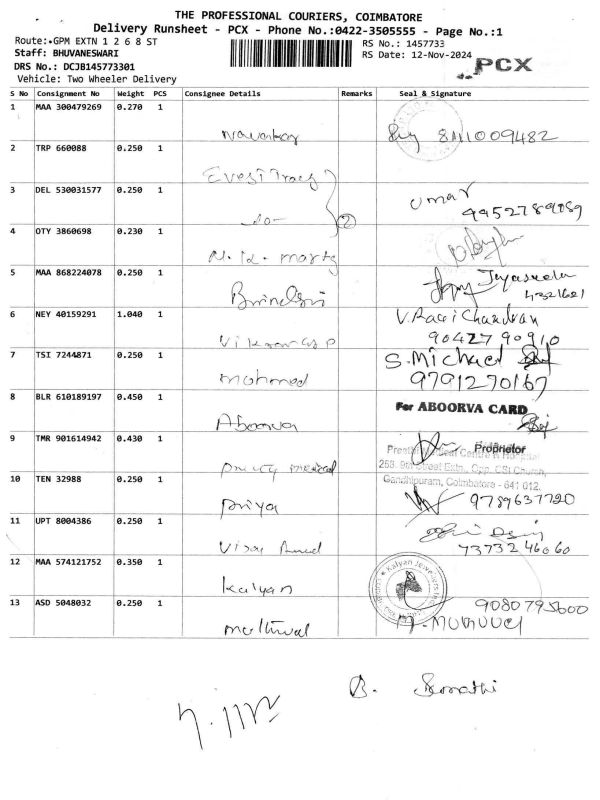 THE PROFESSIONAL COURIERS, COIMBATORE
Delivery Runsheet - PCX - Phone No.:0422-3505555 - Page No.:1
Route:-GPM EXTN 1 2 6 8 ST
RS No.: 1457733
Staff: BHUVANESWARI
RS Date: 12-Nov-2024
DRS No.: DCJB145773301
PCX
Vehicle: Two Wheeler Delivery
S No Consignment No Weight PCS Consignee Details Remarks Seal & Signature
1 MAA 300479269 0.270 1
8111009482
2 TRP 660088 0.250 1
3 DEL 530031577 0.250 1
umar
-do- 2
4 OTY 3860698 0.230 1
5 MAA 868224078 0.250 1
6 NEY 40159291 1.040 1
90427 90910
7 TSI 7244871 0.250 1
S. Michael
mohmed 9791270167
8 BLR 610189197 0.450 1
For ABOORVA CARD
Aboorva
9 TMR 901614942 0.430 1
Proprietor
258, 9th Street Extn., Opp. CSI Church,
10 TEN 32988 0.250 1
Gandhipuram, Coimbatore - 641 012.
Priya 9789637720
11 UPT 8004386 0.250 1
73732 46060
12 MAA 574121752 0.350 1
Kalyan Jewellers
Kalyan
13 ASD 5048032 0.250 1
9080795600
B.